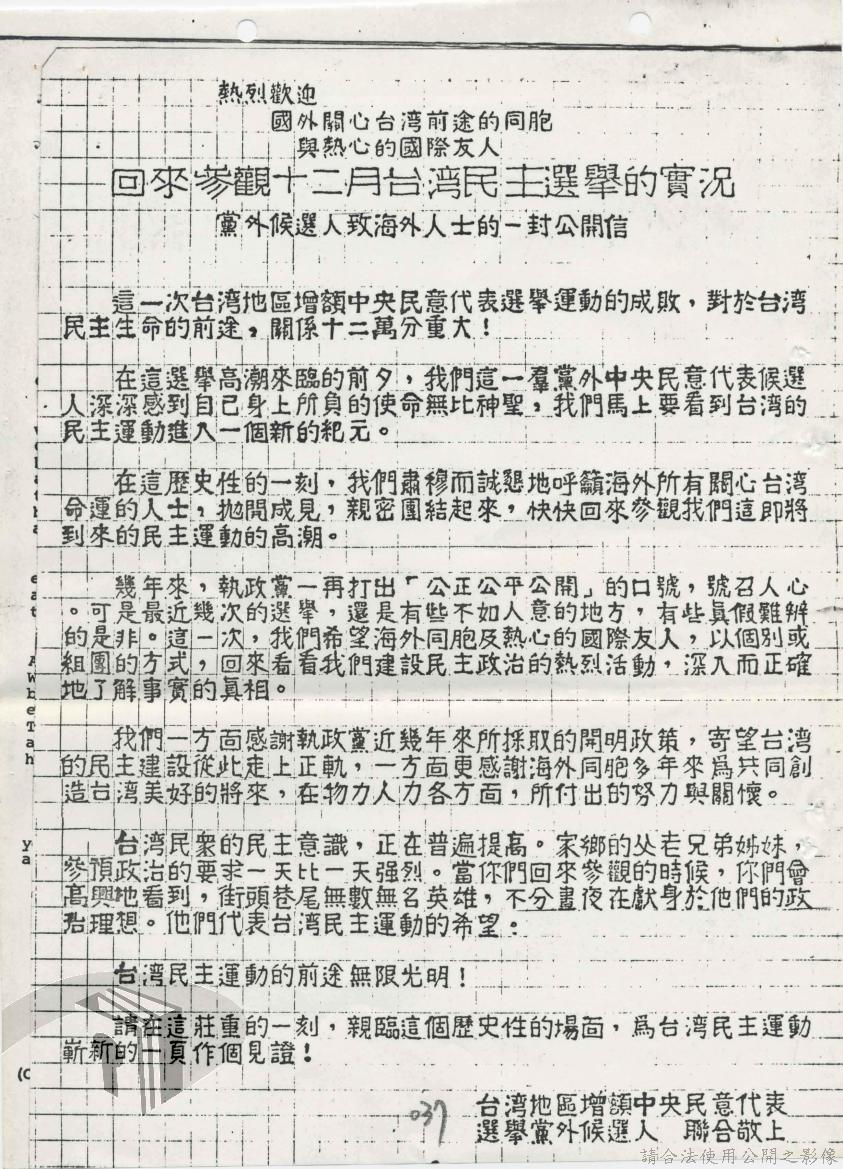 熱烈歡迎
國外關心台湾前途的同胞
與熱心的國際友人
回來參觀十二月台湾民主選舉的實況
黨外候選人致海外人士的一封公開信
這一次台湾地區增額中央民意代表選舉運動的成敗，對於台湾
民主生命的前途，關係十二萬分重大！
在這選舉高潮來臨的前夕，我們這一羣黨外中央民意代表候選
人深深感到自己身上所負的使命無比神聖，我們馬上要看到台湾的
民主運動進入一個新的紀元。
在這歷史性的一刻，我們肅穆而誠懇地呼籲海外所有關心台湾
命運的人士，拋開成見，親密團結起來，快快回來參觀我們這即將
到來的民主運動的高潮。
幾年來，執政黨一再打出「公正公平公開」的口號，號召人心
。可是最近幾次的選舉，還是有些不如人意的地方，有些眞假難辨
的是非。這一次，我們希望海外同胞及熱心的國際友人，以個別或
組團的方式，回來看看我們建設民主政治的熱烈活動，深入而正確
地了解事實的眞相。
我們一方面感謝執政黨近幾年來所採取的開明政策，寄望台湾
的民主建設從此走上正軌，一方面更感謝海外同胞多年來爲共同創
造台湾美好的將來，在物力人力各方面，所付出的努力與關懷。
台湾民衆的民主意識，正在普遍提高。家鄉的父老兄弟姊妹，
參預政治的要求一天比一天强烈。當你們回來參觀的時候，你們會
高興地看到，街頭巷尾無數無名英雄，不分晝夜在獻身於他們的政
治理想。他們代表台湾民主運動的希望。
台湾民主運動的前途無限光明！
請在這莊重的一刻，親臨這個歷史性的場面，爲台湾民主運動
嶄新的一頁作個見證！
台湾地區增額中央民意代表
選舉黨外候選人 聯合敬上
037
請合法使用公開之影像